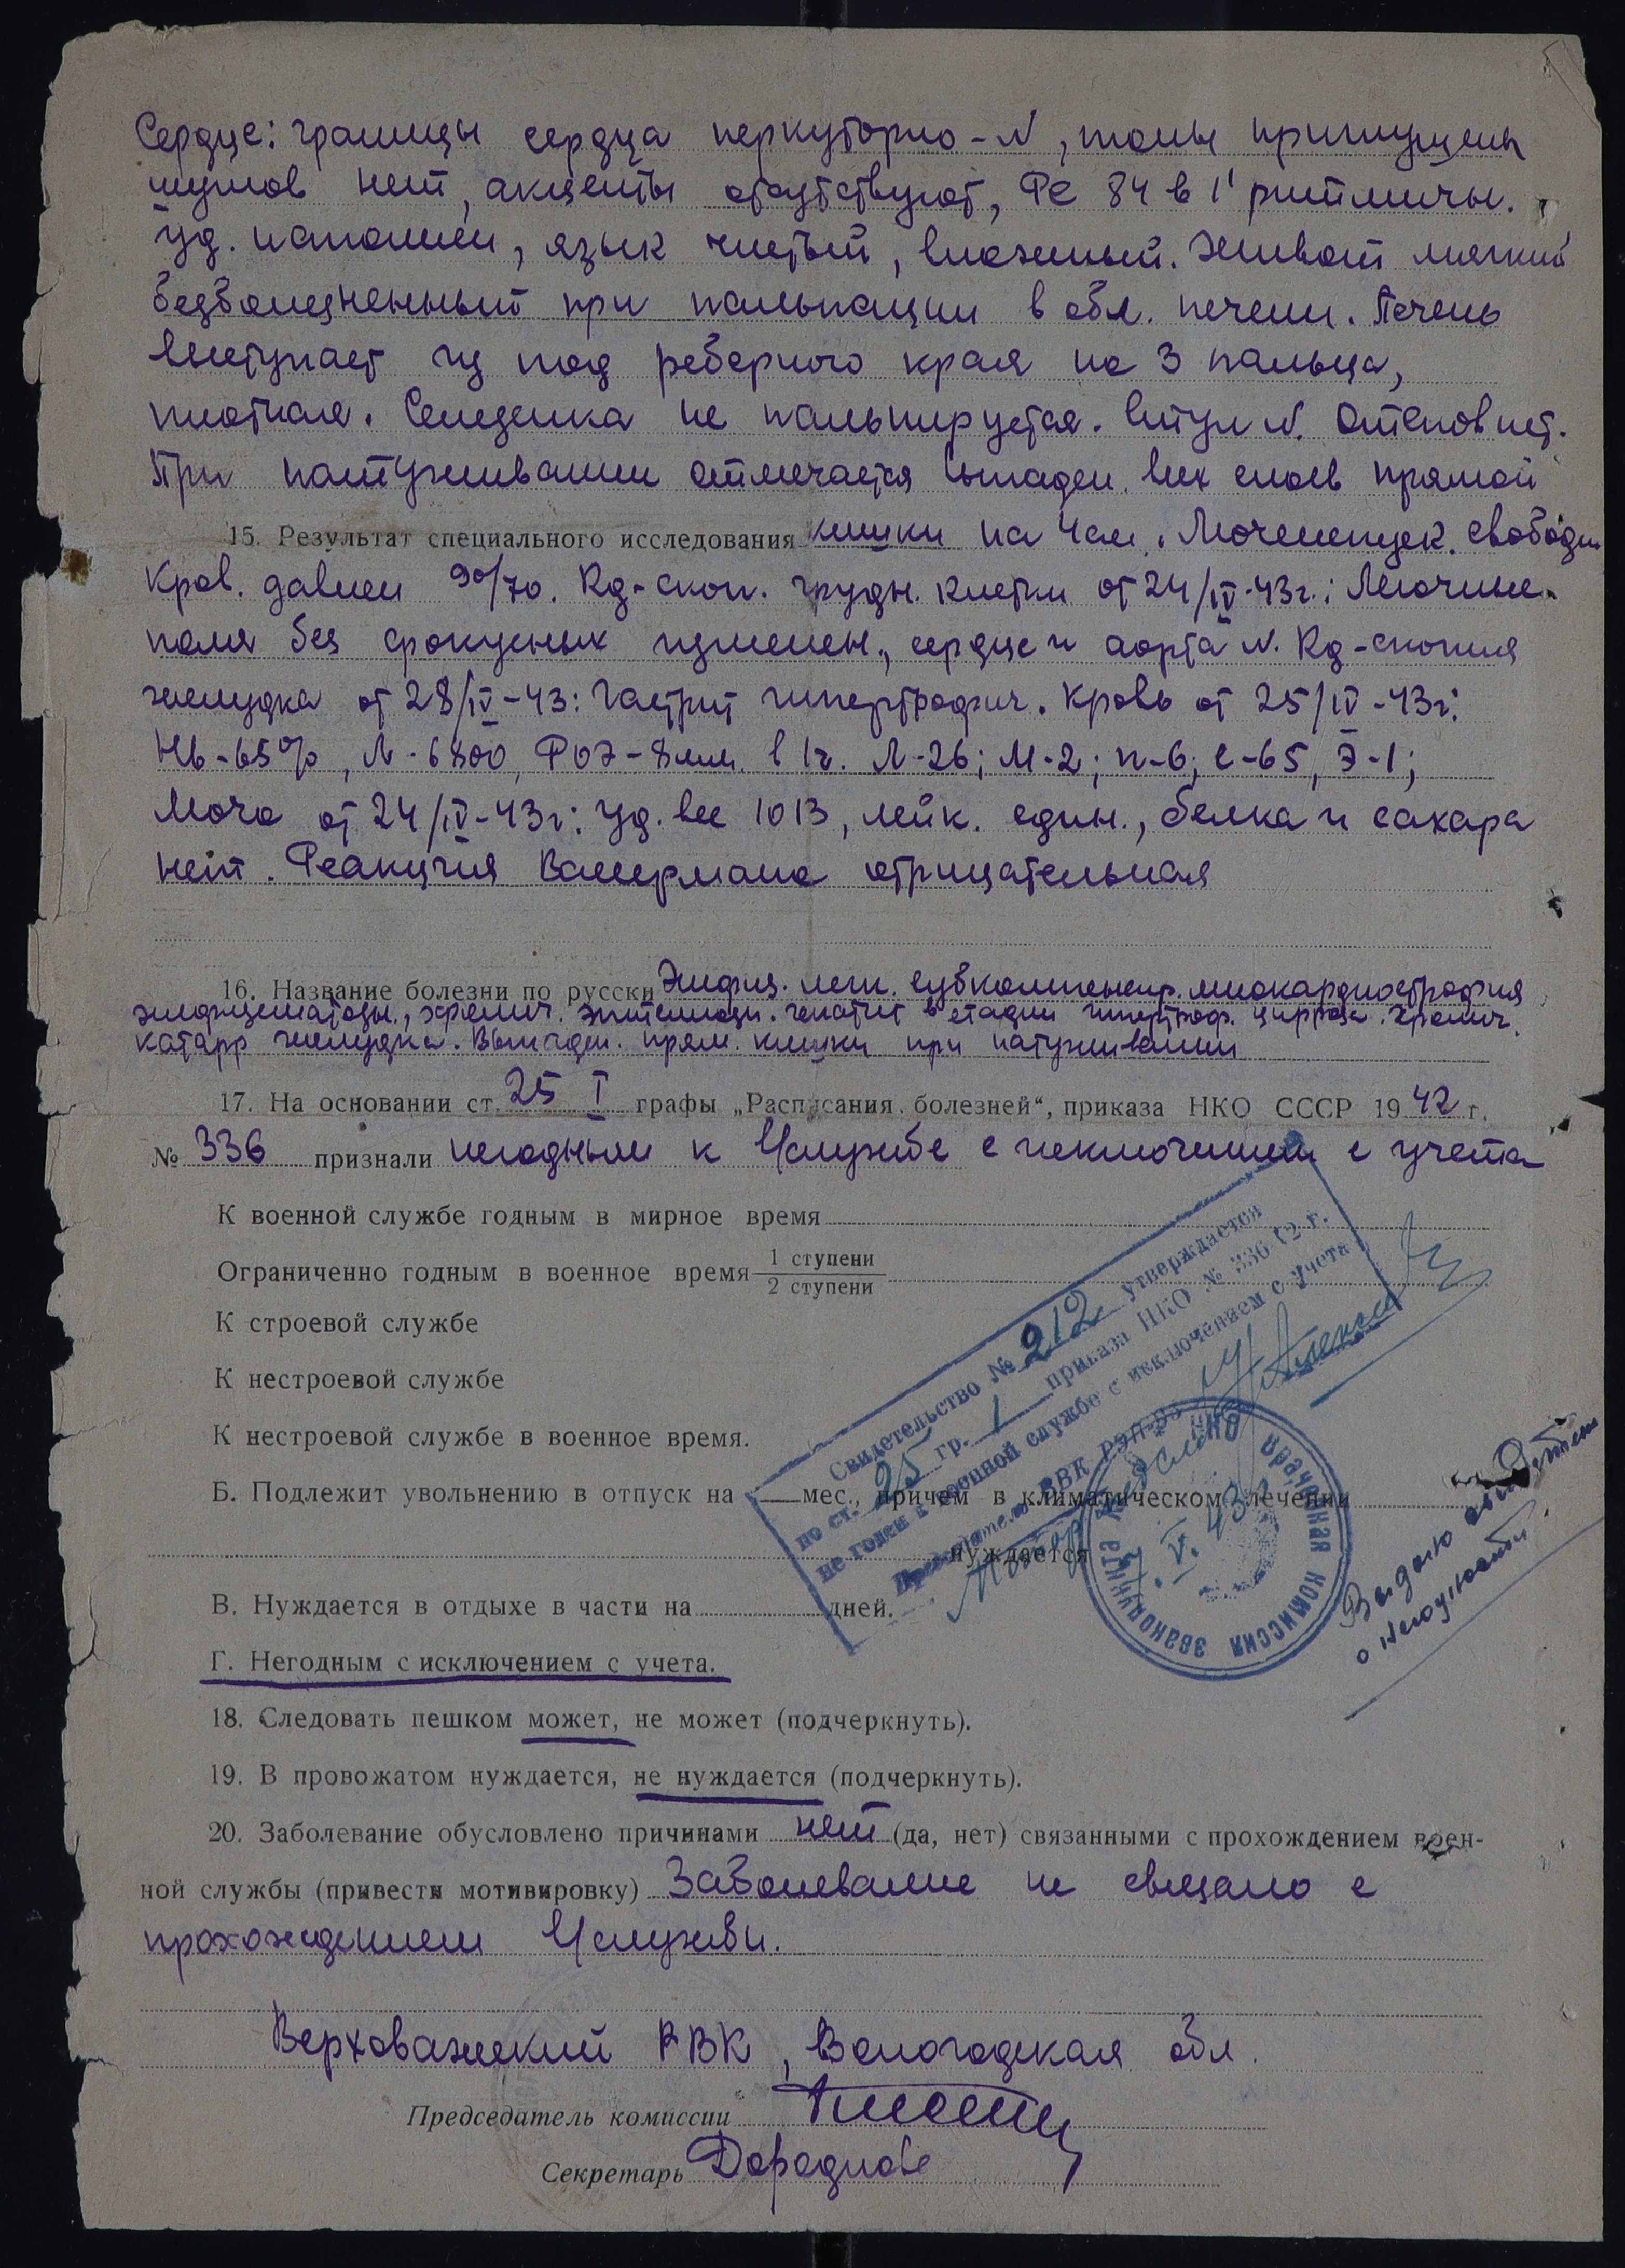 Сердце: границы сердца перкуторно - N, тоны приглушены
шумов нет, акценты отсутствуют, Ps 84 в 1' ритмичн.
уд. наполнен, язык чистый, влажный. Живот мягкий
безболезненный при пальпации в обл. печени. Печень
выступает из под реберного края на 3 пальца,
плотная. Селезенка не пальпируется. Стул N. Отеков нет.
При натуживании отмечается выпаден. всех слоев прямой
15. Результат специального исследования кишки на 4 см. Мочеиспуск. свободн
Кров. давлен 90/70. Rg-скоп. грудн. клетки от 24/IV-43г.: Легочные
поля без фокусных изменен., сердце и аорта N. Rg-скопия
желудка от 28/IV-43: Гастрит гипертрофич. Кровь от 25/IV-43г:
Hb-65%, Л-6800, РОЭ-8мм. в 1ч. Л-26; М-2; п-6; с-65, Э-1;
Моча от 24/IV-43г: уд. вес 1013, лейк. един., белка и сахара
нет. Реакция Вассермана отрицательная
16. Название болезни по русски Эмфиз. легк. субкомпенсир. миокардиострофия
эмфизематозн., хронич. эпителиозн. гепатит в стадии гипертроф. цирроза. Хронич.
катарр желудка. Выпаден. прям. кишки при натуживании
17. На основании ст. 25 I графы „Расписания болезней“, приказа НКО СССР 1942 г.
№ 336 признали негодным к в/службе с исключением с учета
К военной службе годным в мирное время
Ограниченно годным в военное время 1 ступени
2 ступени
К строевой службе
К нестроевой службе
К нестроевой службе в военное время.
Свидетельство № 212 утверждается
по ст. 25 гр. 1 приказа НКО № 336 42 г.
не годен к военной службе с исключением с учета
Председатель ВВК РЭП-95
Майор медсл
НКО врачебная комиссия
V. 43г
Б. Подлежит увольнению в отпуск на — мес., причем в климатическом лечении
нуждается
Выдано свидетел
о негодности.
В. Нуждается в отдыхе в части на дней.
Г. Негодным с исключением с учета.
18. Следовать пешком может, не может (подчеркнуть).
19. В провожатом нуждается, не нуждается (подчеркнуть).
20. Заболевание обусловлено причинами нет (да, нет) связанными с прохождением воен-
ной службы (привести мотивировку) Заболевание не связано с
прохождением в/службы.
Верховажский РВК, Вологодская обл.
Председатель комиссии
Секретарь